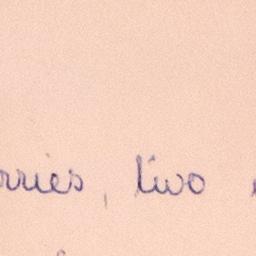 rries, two